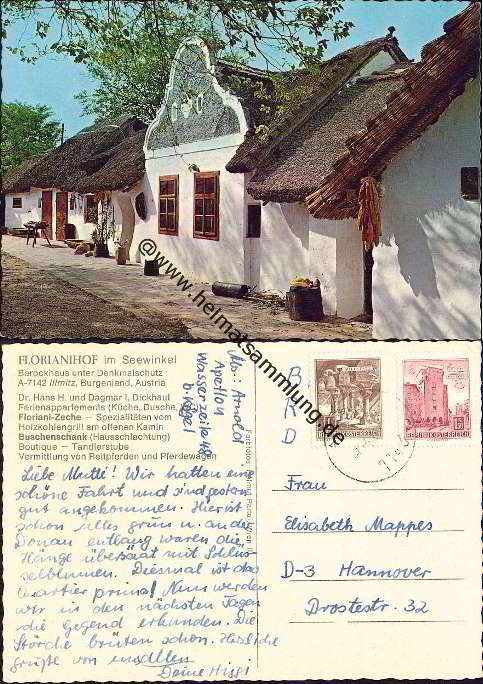 @www.heimatsammlung.de
FLORIANIHOF im Seewinkel
Barockhaus unter Denkmalschutz
A-7142 Illmitz, Burgenland, Austria
Dr. Hans H. und Dagmar I. Dickhaut
Ferienappartements (Küche, Dusche,
Floriani-Zeche — Spezialitäten vom
Holzkohlengrill am offenen Kamin
Buschenschank (Hausschlachtung)
Boutique — Tandlerstube
Vermittlung von Reitpferden und Pferdewagen
Abs.: Arnold
Apetlon
Wasserzeile 48
b. Vögel
Liebe Mutti! Wir hatten eine
schöne Fahrt und sind gestern
gut angekommen. Hier ist
schon alles grün u. an der
Donau entlang waren die
Hänge übersät mit Schlüs-
selblumen. Diesmal ist das
Quartier prima! Nun werden
wir in den nächsten Tagen
die Gegend erkunden. Die
Störche brüten schon. Herzliche
Grüße von uns allen
Deine
BRD
REPUBLIK ÖSTERREICH
REPUBLIK ÖSTERREICH
Frau
Elisabeth Mappes
D-3 Hannover
Drostestr. 32